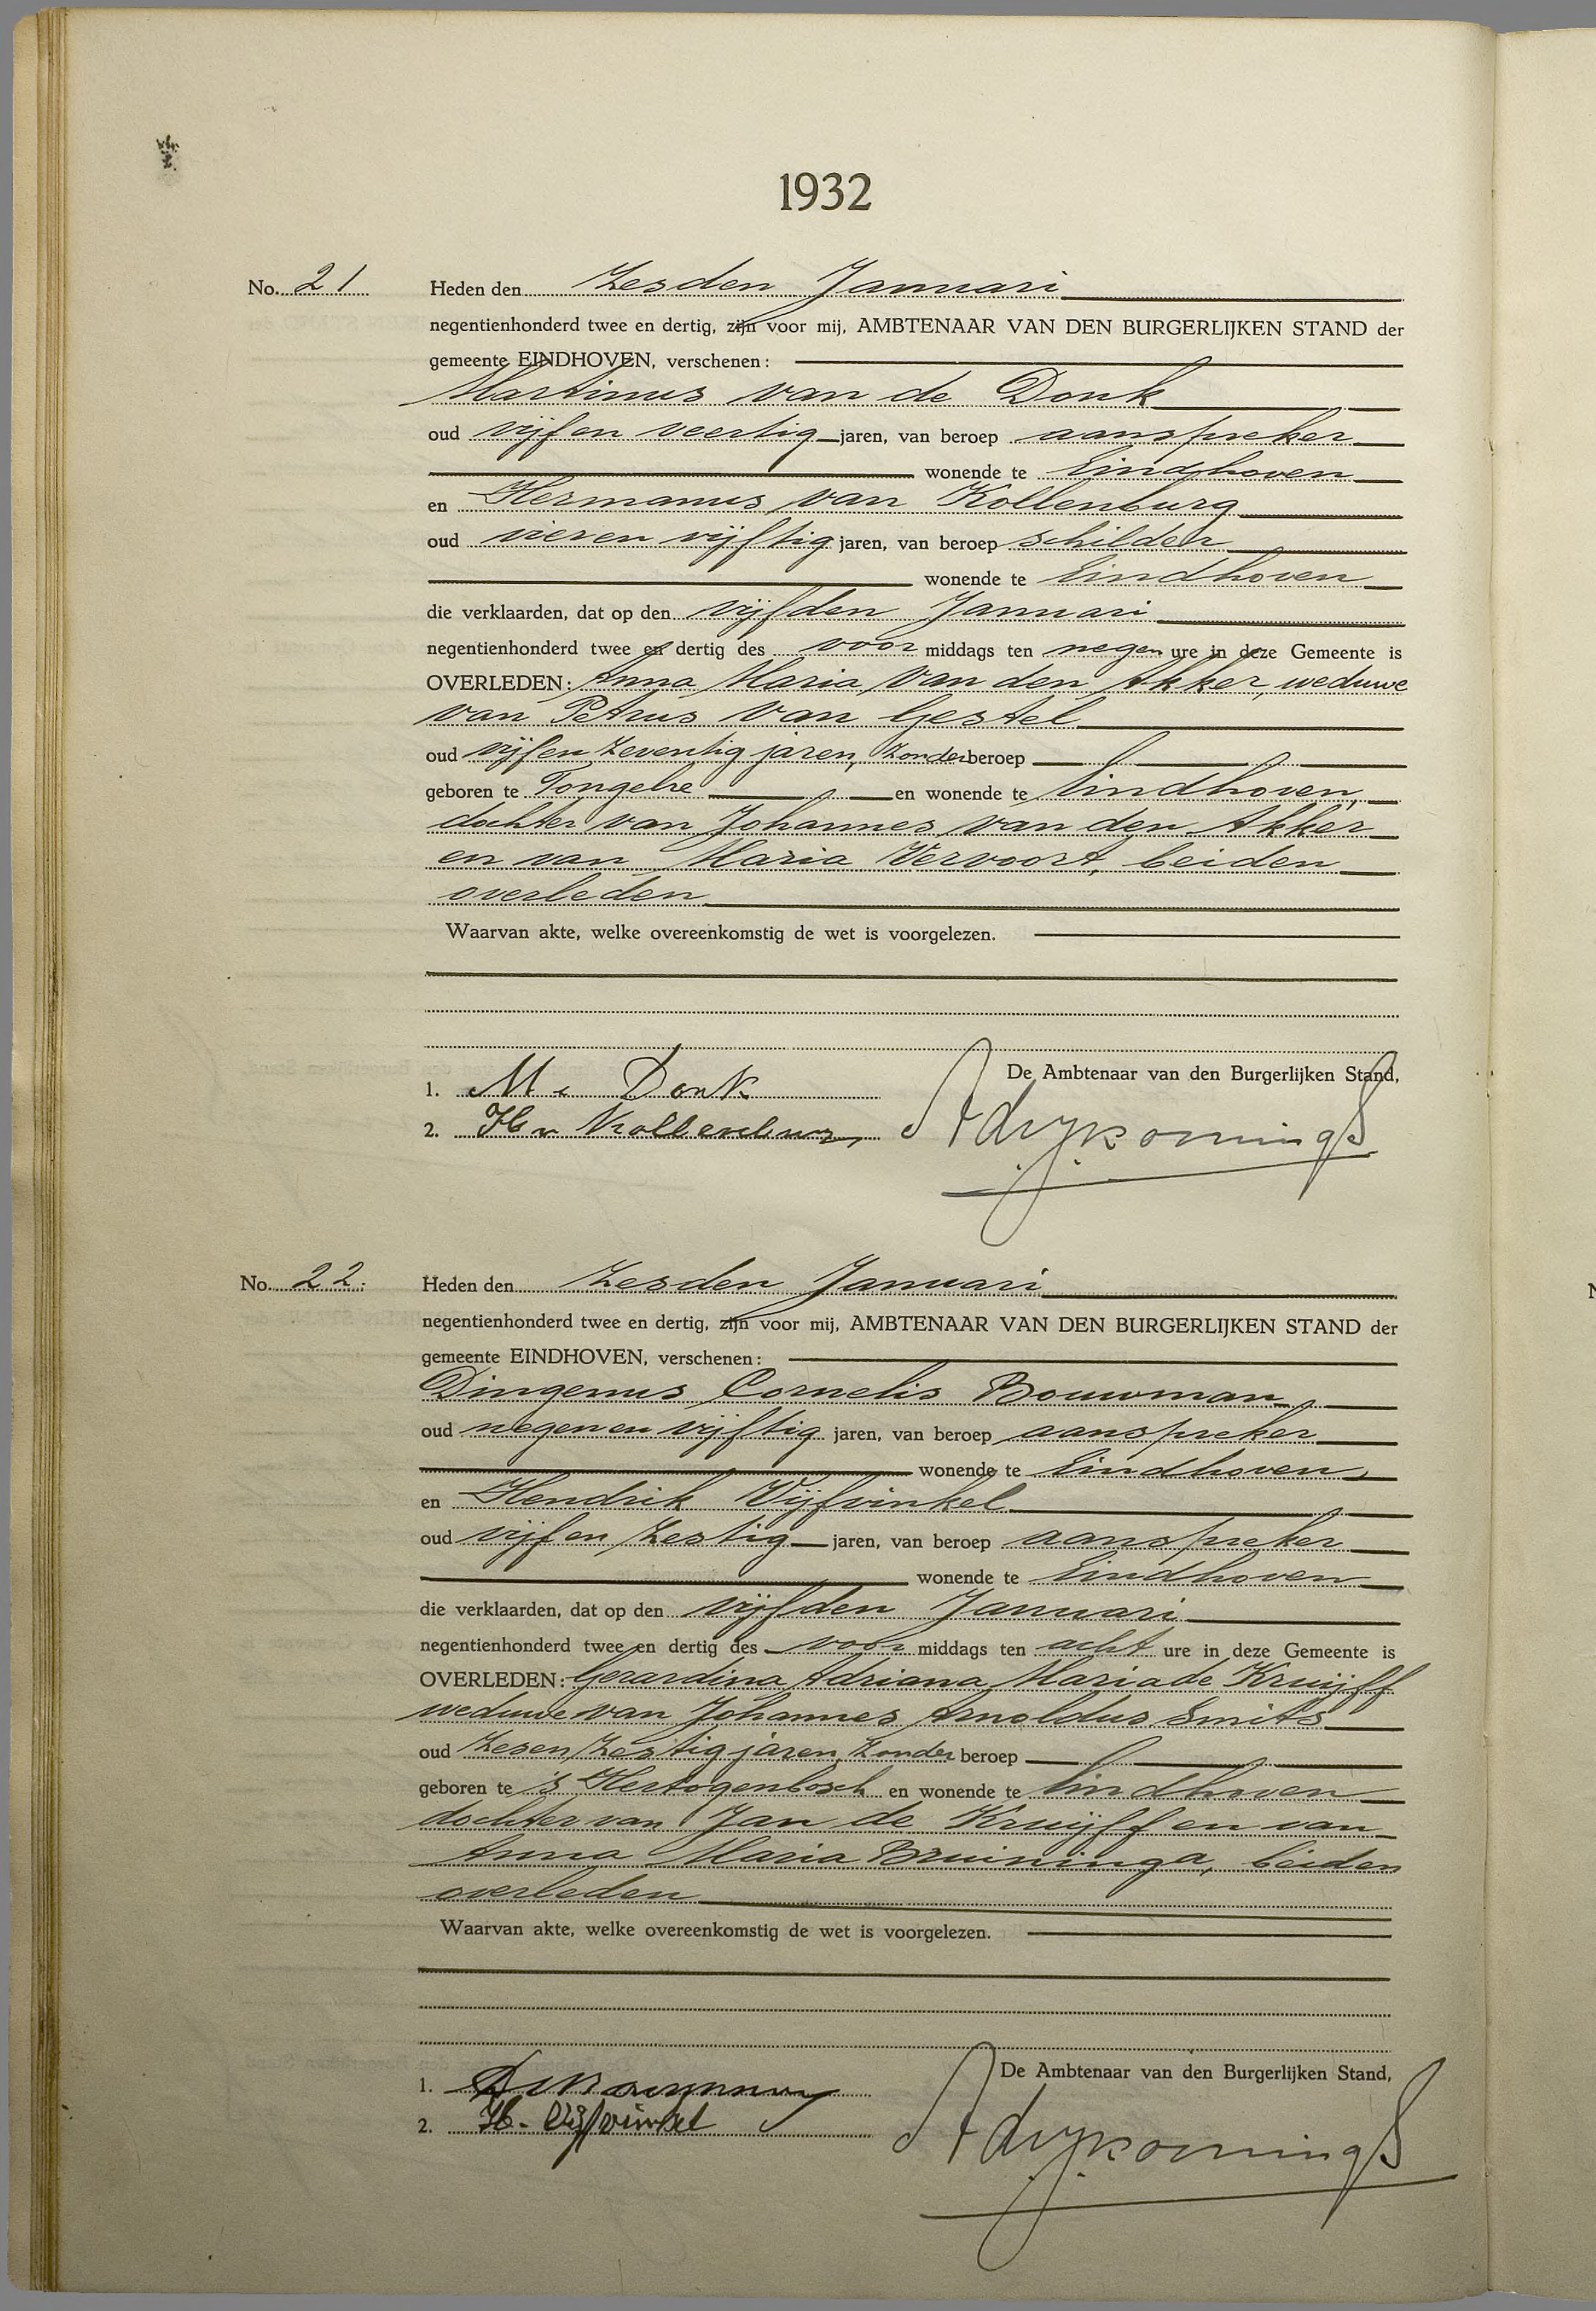 1932
No. 21 Heden den Zesden Januari
negentienhonderd twee en dertig, zijn voor mij, AMBTENAAR VAN DEN BURGERLIJKEN STAND der
gemeente EINDHOVEN, verschenen:
Martinus van de Donk
oud vijf en veertig jaren, van beroep aanspreker
wonende te Eindhoven
en Hermanus van Kollenburg
oud vier en vijftig jaren, van beroep schilder
wonende te Eindhoven
die verklaarden, dat op den vijfden Januari
negentienhonderd twee en dertig des voor middags ten negen ure in deze Gemeente is
OVERLEDEN: Anna Maria van den Akker, weduwe
van Petrus van Gestel
oud vijf en zeventig jaren, zonder beroep
geboren te Tongelre en wonende te Eindhoven,
dochter van Johannes van den Akker
en van Maria Vervoort, beiden
overleden
Waarvan akte, welke overeenkomstig de wet is voorgelezen.
De Ambtenaar van den Burgerlijken Stand,
1. M v Donk
2. H v Kollenburg
No. 22. Heden den Zesden Januari
negentienhonderd twee en dertig, zijn voor mij, AMBTENAAR VAN DEN BURGERLIJKEN STAND der
gemeente EINDHOVEN, verschenen:
Dingenus Cornelis Bouwman
oud negen en vijftig jaren, van beroep aanspreker
wonende te Eindhoven,
en Hendrik Vijfvinkel
oud vijf en zestig jaren, van beroep aanspreker
wonende te Eindhoven
die verklaarden, dat op den vijfden Januari
negentienhonderd twee en dertig des voor middags ten acht ure in deze Gemeente is
OVERLEDEN: Gerardina Adriana Maria de Kruijff
weduwe van Johannes Arnoldus Smits
oud zes en zestig jaren, zonder beroep
geboren te 's Hertogenbosch en wonende te Eindhoven
dochter van Jan de Kruijff en van
Anna Maria Bruininga, beiden
overleden
Waarvan akte, welke overeenkomstig de wet is voorgelezen.
De Ambtenaar van den Burgerlijken Stand,
1.
2. H. Vijfvinkel